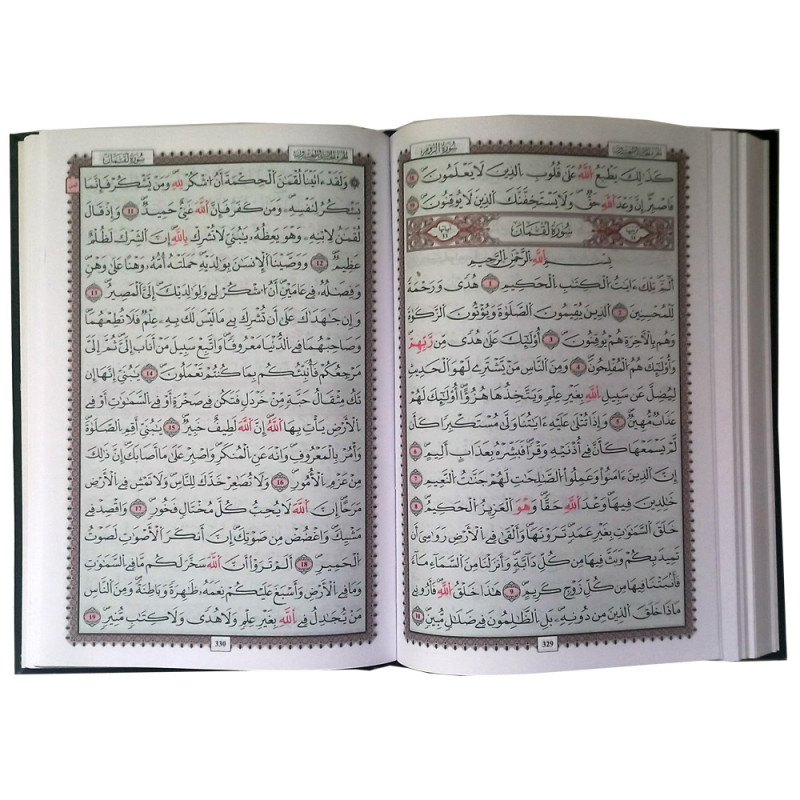 سُورَةُ الرُّومِ
الجزء الحادي والعشرون
كَذَٰلِكَ يَطْبَعُ اللَّهُ عَلَىٰ قُلُوبِ الَّذِينَ لَا يَعْلَمُونَ
فَاصْبِرْ إِنَّ وَعْدَ اللَّهِ حَقٌّ وَلَا يَسْتَخِفَّنَّكَ الَّذِينَ لَا يُوقِنُونَ
سُورَةُ لُقْمَانَ
بِسْمِ اللَّهِ الرَّحْمَٰنِ الرَّحِيمِ
أَلَمِّ تِلْكَ ءَايَٰتُ الْكِتَٰبِ الْحَكِيمِ 1 هُدًى وَرَحْمَةً
لِّلْمُحْسِنِينَ 2 الَّذِينَ يُقِيمُونَ الصَّلَوٰةَ وَيُوتُونَ الزَّكَوٰةَ
وَهُم بِالْأَخِرَةِ هُمْ يُوقِنُونَ 3 أُوْلَٰئِكَ عَلَىٰ هُدًى مِّن رَّبِّهِمْ
وَأُوْلَٰئِكَ هُمُ الْمُفْلِحُونَ 4 وَمِنَ النَّاسِ مَن يَشْتَرِي لَهْوَ الْحَدِيثِ
لِيُضِلَّ عَن سَبِيلِ اللَّهِ بِغَيْرِ عِلْمٍ وَيَتَّخِذُهَا هُزُؤًا أُوْلَٰئِكَ لَهُمْ
عَذَابٌ مُّهِينٌ 5 وَإِذَا تُتْلَىٰ عَلَيْهِ ءَايَٰتُنَا وَلَّىٰ مُسْتَكْبِرًا كَأَن
لَّمْ يَسْمَعْهَا كَأَنَّ فِي أُذْنَيْهِ وَقْرًا فَبَشِّرْهُ بِعَذَابٍ أَلِيمٍ 6
إِنَّ الَّذِينَ ءَامَنُوا وَعَمِلُوا الصَّٰلِحَٰتِ لَهُمْ جَنَّٰتُ النَّعِيمِ 7
خَٰلِدِينَ فِيهَا وَعْدَ اللَّهِ حَقًّا وَهْوَ الْعَزِيزُ الْحَكِيمُ 8
خَلَقَ السَّمَٰوَٰتِ بِغَيْرِ عَمَدٍ تَرَوْنَهَا وَأَلْقَىٰ فِي الْأَرْضِ رَوَٰسِيَ أَن
تَمِيدَ بِكُمْ وَبَثَّ فِيهَا مِن كُلِّ دَابَّةٍ وَأَنزَلْنَا مِنَ السَّمَاءِ مَاءً
فَأَنبَتْنَا فِيهَا مِن كُلِّ زَوْجٍ كَرِيمٍ 9 هَٰذَا خَلْقُ اللَّهِ فَأَرُونِي
مَاذَا خَلَقَ الَّذِينَ مِن دُونِهِ بَلِ الظَّٰلِمُونَ فِي ضَلَٰلٍ مُّبِينٍ 10
329
سُورَةُ لُقْمَانَ
الجزء الحادي والعشرون
وَلَقَدْ ءَاتَيْنَا لُقْمَٰنَ الْحِكْمَةَ أَنُ اشْكُرْ لِلهِ وَمَن يَّشْكُرْ فَإِنَّمَا
يَشْكُرُ لِنَفْسِهِ وَمَن كَفَرَ فَإِنَّ اللَّهَ غَنِيٌّ حَمِيدٌ 11 وَإِذْ قَالَ
لُقْمَٰنُ لِابْنِهِ وَهْوَ يَعِظُهُ يَٰبُنَيِّ لَا تُشْرِكْ بِاللَّهِ إِنَّ الشِّرْكَ لَظُلْمٌ
عَظِيمٌ 12 وَوَصَّيْنَا الْإِنسَٰنَ بِوَٰلِدَيْهِ حَمَلَتْهُ أُمُّهُ وَهْنًا عَلَىٰ وَهْنٍ
وَفِصَٰلُهُ فِي عَامَيْنِ أَنُ اشْكُرْ لِي وَلِوَٰلِدَيْكَ إِلَيَّ الْمَصِيرُ 13
وَإِن جَٰهَدَٰكَ عَلَىٰ أَن تُشْرِكَ بِي مَا لَيْسَ لَكَ بِهِ عِلْمٌ فَلَا تُطِعْهُمَا
وَصَاحِبْهُمَا فِي الدُّنْيَا مَعْرُوفًا وَاتَّبِعْ سَبِيلَ مَنْ أَنَابَ إِلَيَّ ثُمَّ إِلَيَّ
مَرْجِعُكُمْ فَأُنَبِّئُكُم بِمَا كُنتُمْ تَعْمَلُونَ 14 يَٰبُنَيِّ إِنَّهَا إِن
تَكُ مِثْقَالُ حَبَّةٍ مِّنْ خَرْدَلٍ فَتَكُن فِي صَخْرَةٍ أَوْ فِي السَّمَٰوَٰتِ أَوْ فِي
الْأَرْضِ يَأْتِ بِهَا اللَّهُ إِنَّ اللَّهَ لَطِيفٌ خَبِيرٌ 15 يَٰبُنَيِّ أَقِمِ الصَّلَوٰةَ
وَأْمُرْ بِالْمَعْرُوفِ وَانْهَ عَنِ الْمُنكَرِ وَاصْبِرْ عَلَىٰ مَا أَصَابَكَ إِنَّ ذَٰلِكَ
مِنْ عَزْمِ الْأُمُورِ 16 وَلَا تُصَٰعِرْ خَدَّكَ لِلنَّاسِ وَلَا تَمْشِ فِي الْأَرْضِ
مَرَحًا إِنَّ اللَّهَ لَا يُحِبُّ كُلَّ مُخْتَالٍ فَخُورٍ 17 وَاقْصِدْ فِي
مَشْيِكَ وَاغْضُضْ مِن صَوْتِكَ إِنَّ أَنكَرَ الْأَصْوَٰتِ لَصَوْتُ
الْحَمِيرِ 18 أَلَمْ تَرَوْا أَنَّ اللَّهَ سَخَّرَ لَكُم مَّا فِي السَّمَٰوَٰتِ
وَمَا فِي الْأَرْضِ وَأَسْبَغَ عَلَيْكُمْ نِعَمَهُ ظَٰهِرَةً وَبَاطِنَةً وَمِنَ النَّاسِ
مَن يُّجَٰدِلُ فِي اللَّهِ بِغَيْرِ عِلْمٍ وَلَا هُدًى وَلَا كِتَٰبٍ مُّنِيرٍ 19
330